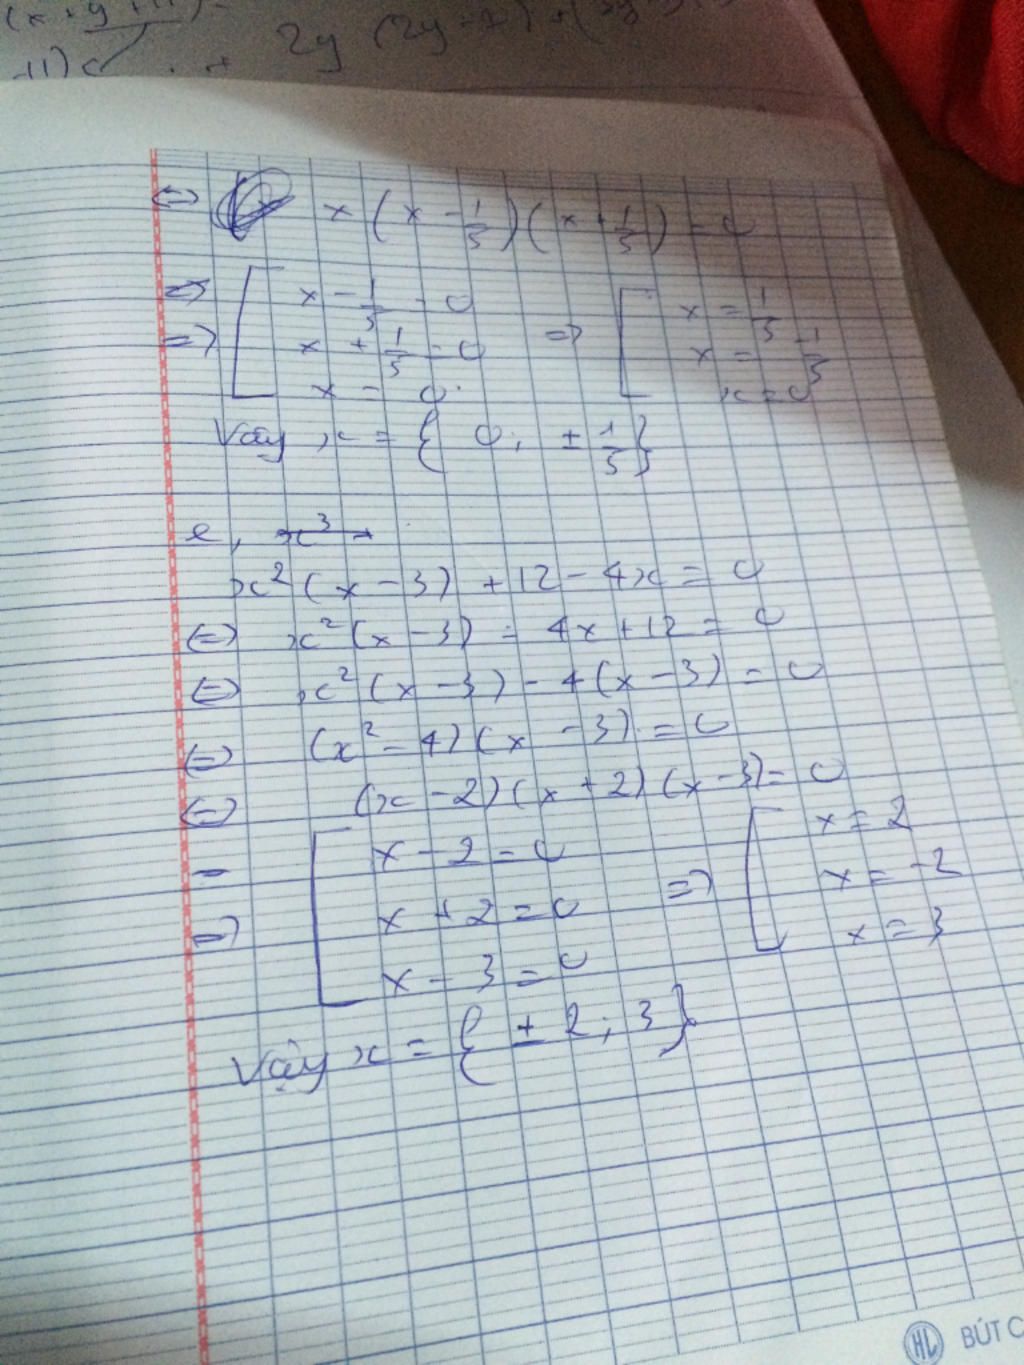 ⇔ x(x - 1/5)(x + 1/5) = 0
⇔
⇒ [ x - 1/5 = 0 ⇒ [ x = 1/5
x + 1/5 = 0 x = -1/5
x = 0 x = 0
Vậy x = { 0; ± 1/5 }
e, x³
x²(x - 3) + 12 - 4x = 0
⇔ x²(x - 3) - 4x + 12 = 0
⇔ x²(x - 3) - 4(x - 3) = 0
⇔ (x² - 4)(x - 3) = 0
⇔ (x - 2)(x + 2)(x - 3) = 0
⇒ [ x - 2 = 0 ⇒ [ x = 2
x + 2 = 0 x = -2
x - 3 = 0 x = 3
Vậy x = { ± 2; 3 }
HL BÚT